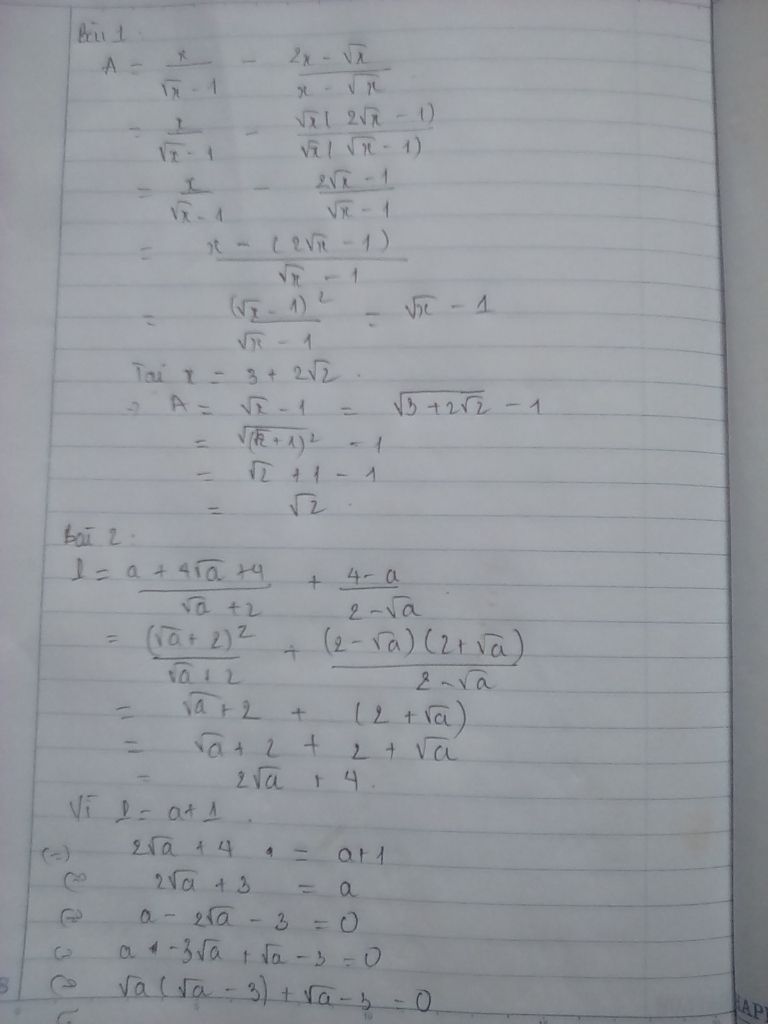 Bài 1.
A = x/(√x - 1) - (2x - √x)/(x - √x)
= x/(√x - 1) - √x(2√x - 1)/√x(√x - 1)
= x/(√x - 1) - (2√x - 1)/(√x - 1)
= (x - (2√x - 1))/(√x - 1)
= (√x - 1)²/(√x - 1) = √x - 1
Tại x = 3 + 2√2.
→ A = √x - 1 = √(3 + 2√2) - 1
= √((√2 + 1)²) - 1
= √2 + 1 - 1
= √2.
Bài 2.
P = (a + 4√a + 4)/(√a + 2) + (4 - a)/(2 - √a)
= (√a + 2)²/(√a + 2) + (2 - √a)(2 + √a)/(2 - √a)
= √a + 2 + (2 + √a)
= √a + 2 + 2 + √a
= 2√a + 4.
Vì P = a + 1.
(=) 2√a + 4 = a + 1
⇔ 2√a + 3 = a
⇔ a - 2√a - 3 = 0
⇔ a - 3√a + √a - 3 = 0
⇔ √a(√a - 3) + √a - 3 = 0